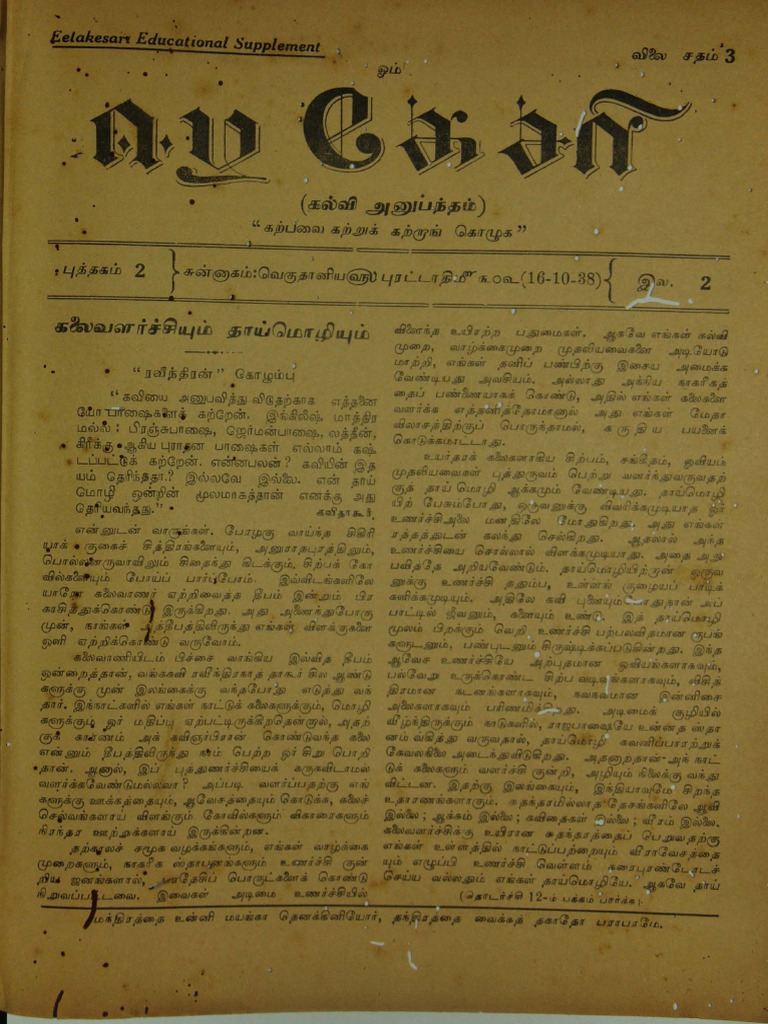 Eelakesari Educational Supplement
விலை சதம் 3
ஓம்
ஈழகேசரி
(கல்வி அனுபந்தம்)
“கற்பவை கற்றுக் கற்றாங் கொழுக”
புத்தகம் 2
சுன்னாகம்: வெகுதானியஹு புரட்டாதிமீ ௩௦௨ (16-10-38)
இல. 2
கலைவளர்ச்சியும் தாய்மொழியும்
“ரவீந்திரன்” கொழும்பு
“கவியை அனுபவித்து விடுதற்காக எத்தனை
யோ பாஷைகளைக் கற்றேன். இங்கிலீஷ் மாத்திர
மல்ல: பிரஞ்சுபாஷை, ஜெர்மன்பாஷை, லத்தீன்,
கிரீக்கு ஆகிய புராதன பாஷைகள் எல்லாம் கஷ்
டப்பட்டுக் கற்றேன். என்னபலன்? கவியின் இத
யம் தெரிந்ததா? இல்லவே இல்லை. என் தாய்
மொழி ஒன்றின் மூலமாகத்தான் எனக்கு அது
தெரியவந்தது.”
கவிதாகூர்.
என்னுடன் வாருங்கள். போழகு வாய்ந்த சிகிரி
யாக் குகைச் சித்திரங்களையும், அனுராதபுரத்திலும்,
பொலனறுவாவிலும் சிதைந்து கிடக்கும், சிற்பக் கோ
வில்களையும் போய்ப் பார்ப்போம். இவ்விடங்களிலே
யாரோ கலைவாணர் ஏற்றிவைத்த தீபம் இன்றும் பிர
காசித்துக்கொண்டு இருக்கிறது. அது அணைந்துபோகு
முன், நாங்கள் அத்தீபத்திலிருந்து எங்கள் விளக்குகளை
ஒளி ஏற்றிக்கொண்டு வருவோம்.
கலைவாணியிடம் பிச்சை வாங்கிய இவ்வித தீபம்
ஒன்றைத்தான், வங்ககவி ரவீந்திரநாத் தாகூர் சில ஆண்டு
களுக்கு முன் இலங்கைக்கு வந்தபோது எடுத்து வந்
தார். இந்நாட்களில் எங்கள் நாட்டுக் கலைகளுக்கும், மொழி
களுக்கும் ஓர் மதிப்பு ஏற்பட்டிருக்கிறதென்றால், அதற்
குக் காரணம் அக் கவிஞர்பிரான் கொண்டுவந்த கலை
என்னும் தீபத்திலிருந்து நாம் பெற்ற ஓர் சிறு பொறி
தான். ஆனால், இப் புத்துணர்ச்சியைக் கருகவிடாமல்
வளர்க்கவேண்டுமல்லவா? அப்படி வளர்ப்பதற்கு எங்
களுக்கு ஊக்கத்தையும், ஆவேசத்தையும் கொடுக்க, கலைச்
செல்வங்களாய் விளங்கும் கோவில்களும் விகாரைகளும்
நிரந்தர ஊற்றுக்களாய் இருக்கின்றன.
தற்காலச் சமூக வழக்கங்களும், எங்கள் வாழ்க்கை
முறைகளும், நாகரிக ஸ்தாபனங்களும் உணர்ச்சி குன்
றிய ஜனங்களால், அந்நதேசப் பொருட்களைக் கொண்டு
நிறுவப்பட்டவை. இவைகள் அடிமை உணர்ச்சியில்
விளைந்த உயிரற்ற பதுமைகள். ஆகவே எங்கள் கல்வி
முறை, வாழ்க்கைமுறை முதலியவைகளை அடியோடு
மாற்றி, எங்கள் தனிப் பண்பிற்கு இசைய அமைக்க
வேண்டியது அவசியம். அல்லாது அந்நிய நாகரிகத்
தைப் பண்ணையாகக் கொண்டு, அதில் எங்கள் கலைகளை
வளர்க்க எத்தனித்தோமானால் அது எங்கள் மேதா
விலாசத்திற்குப் பொருந்தாமல், கருதிய பயனைக்
கொடுக்கமாட்டாது.
உயர்தரக் கலைகளாகிய சிற்பம், சங்கீதம், ஓவியம்
முதலியவைகள் புத்துருவம் பெற்று வளர்ந்துவருவதற்
குத் தாய் மொழி ஆக்கமும் வேண்டியது. தாய்மொழி
யிற் பேசும்போது, ஒருவனுக்கு விவரிக்கமுடியாத ஓர்
உணர்ச்சிஅலை மனதிலே மோதுகிறது. அது எங்கள்
ரத்தத்துடன் கலந்து செல்கிறது. ஆதலால் அந்த
உணர்ச்சியை சொல்லால் விளக்கமுடியாது. அதை அநு
பவித்தே அறியவேண்டும். தாய்மொழியிற்றான் ஒருவ
னுக்கு உணர்ச்சி ததும்ப, உள்ளங் குழையப் பாடிக்
களிக்கமுடியும். அதிலே கவி புனையும்போதுதான் அப்
பாட்டில் ஜீவனும், களையும் உண்டு. இத் தாய்மொழி
மூலம் பிறக்கும் வெறி, உணர்ச்சி பற்பலவிதமான ரூபங்
களுடனும், பண்புடனும் சிருஷ்டிக்கப்படுகின்றது. இந்த
ஆவேச உணர்ச்சியே அற்புதமான ஓவியங்களாகவும்,
பல்வேறு உருக்கொண்ட சிற்ப வடிவங்களாகவும், சித்
திரமான நடனங்களாகவும், சுகமான இன்னிசை
அலைகளாகவும் பரிணமிக்கின்றது. அடிமைக் குழியில்
வீழ்ந்திருக்கும் நாடுகளில், ராஜபாஷையே உன்னத ஸ்தா
னம் வகித்து வருவதால், தாய்மொழி கவனிப்பாரற்றுக்
கேவலநிலை அடைந்துவிடுகிறது. அதனாற்தான் அந் நாட்
டுக் கலைகளும் வளர்ச்சி குன்றி, அழியும் நிலைக்கு வந்து
விட்டன. இதற்கு இலங்கையும், இந்தியாவுமே சிறந்த
உதாரணங்களாகும். சுதந்தரமில்லாத தேசங்களிலே ஆவி
இல்லை; ஆக்கம் இல்லை; கவிதைகள் இல்லை; வீரம் இல்லை.
கலைவளர்ச்சிக்கு உயிரான சுதந்தரத்தைப் பெறுவதற்கு
எங்கள் உள்ளத்தில் நாட்டுப்பற்றையும் வீராவேசத்தை
யும் எழுப்பி உணர்ச்சி வெள்ளம் கரைபுரண்டோடச்
செய்ய வல்லதும் எங்கள் தாய்மொழியே. ஆகவே தாய்
(தொடர்ச்சி 12-ம் பக்கம் பார்க்க)
மந்திரத்தை உன்னி மயங்கா தெனக்கினியோர், தந்திரத்தை வைக்கத் தகாதோ பராபரமே.